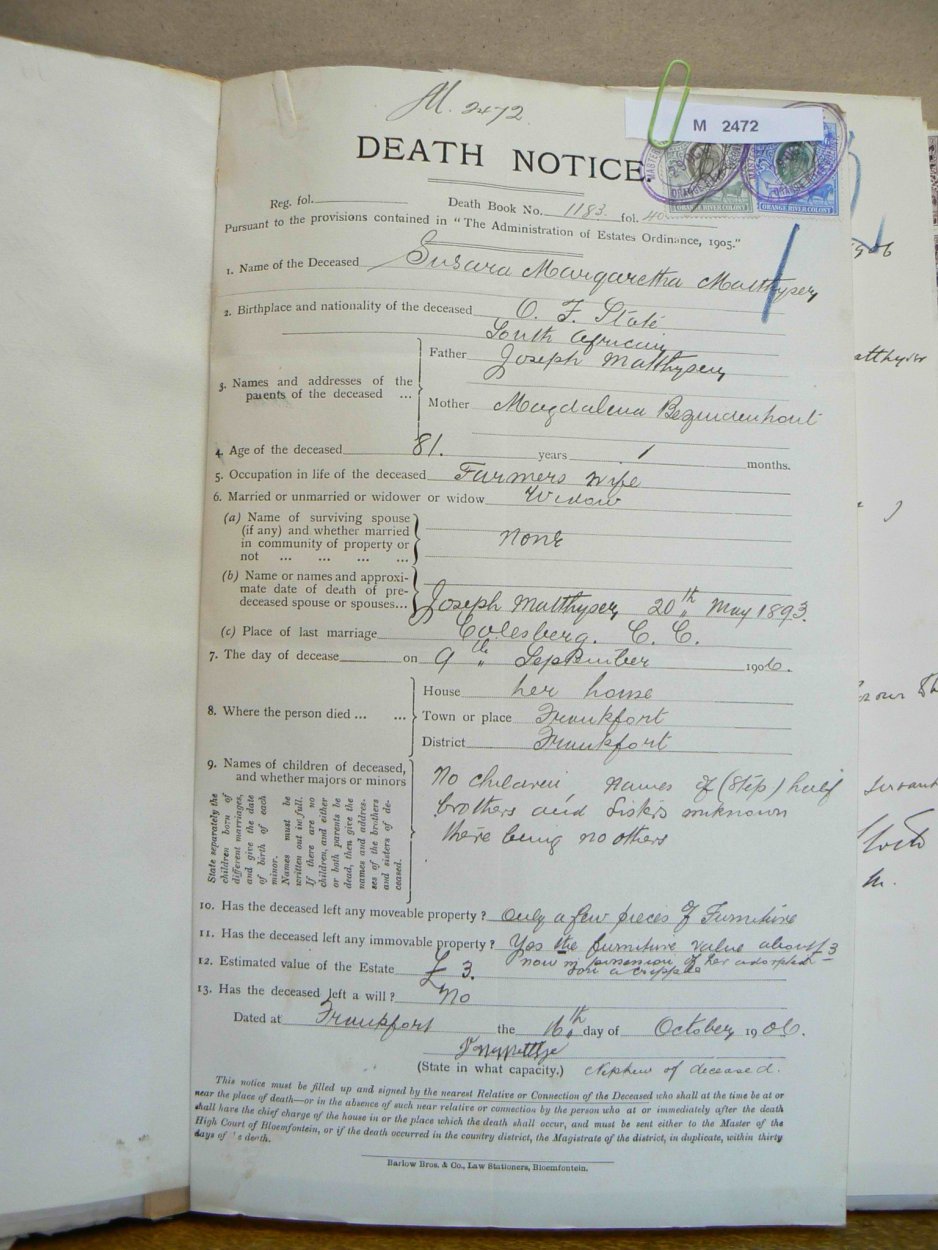 M. 2472
M 2472
DEATH NOTICE.
ORANGE RIVER COLONY
ORANGE RIVER COLONY
Reg. fol. Death Book No. 1183 fol. 40
Pursuant to the provisions contained in "The Administration of Estates Ordinance, 1905."
1. Name of the Deceased Susara Margaretha Matthysen
2. Birthplace and nationality of the deceased O. F. State
South African
3. Names and addresses of the parents of the deceased ...
Father Joseph Matthysen
Mother Magdalena Bezuidenhout
4. Age of the deceased 81. years 1 months.
5. Occupation in life of the deceased Farmers wife
6. Married or unmarried or widower or widow Widow
(a) Name of surviving spouse
(if any) and whether married
in community of property or
not ... ... ... ...
None
(b) Name or names and approxi-
mate date of death of pre-
deceased spouse or spouses...
Joseph Matthysen 20th May 1893.
(c) Place of last marriage Colesberg. C. C.
7. The day of decease on 9th September 1906.
8. Where the person died ... ...
House her home
Town or place Frankfort
District Frankfort
9. Names of children of deceased,
and whether majors or minors
State separately the
children born of
different marriages,
and give the date
of birth of each
minor.
Names must be
written out in full.
If there are no
children, and either
or both parents be
dead, then give the
names and address-
es of the brothers
and sisters of de-
ceased.
No children, names of (step) half
brothers and sisters unknown
there being no others
10. Has the deceased left any moveable property? Only a few pieces of Furniture
11. Has the deceased left any immovable property? Yes the furniture value about £3
now in possession of her adopted
son a cripple
12. Estimated value of the Estate £ 3.
13. Has the deceased left a will? No
Dated at Frankfort the 16th day of October 1906.
(State in what capacity.) Nephew of deceased.
This notice must be filled up and signed by the nearest Relative or Connection of the Deceased who shall at the time be at or
near the place of death—or in the absence of such near relative or connection by the person who at or immediately after the death
shall have the chief charge of the house in or the place which the death shall occur, and must be sent either to the Master of the
High Court of Bloemfontein, or if the death occurred in the country district, the Magistrate of the district, in duplicate, within thirty
days of the death.
Barlow Bros. & Co., Law Stationers, Bloemfontein.